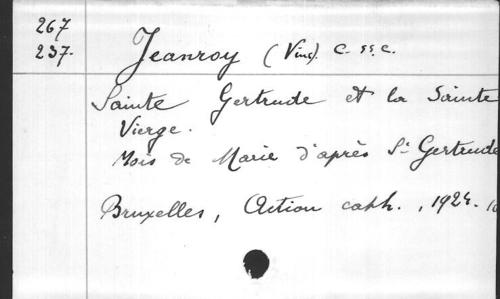 267
237.
Jeanroy (Vinc). C. ss. c.
Sainte Gertrude et la Sainte
Vierge.
Mois de Marie d'après Ste Gertrude
Bruxelles, Action cath., 1924.